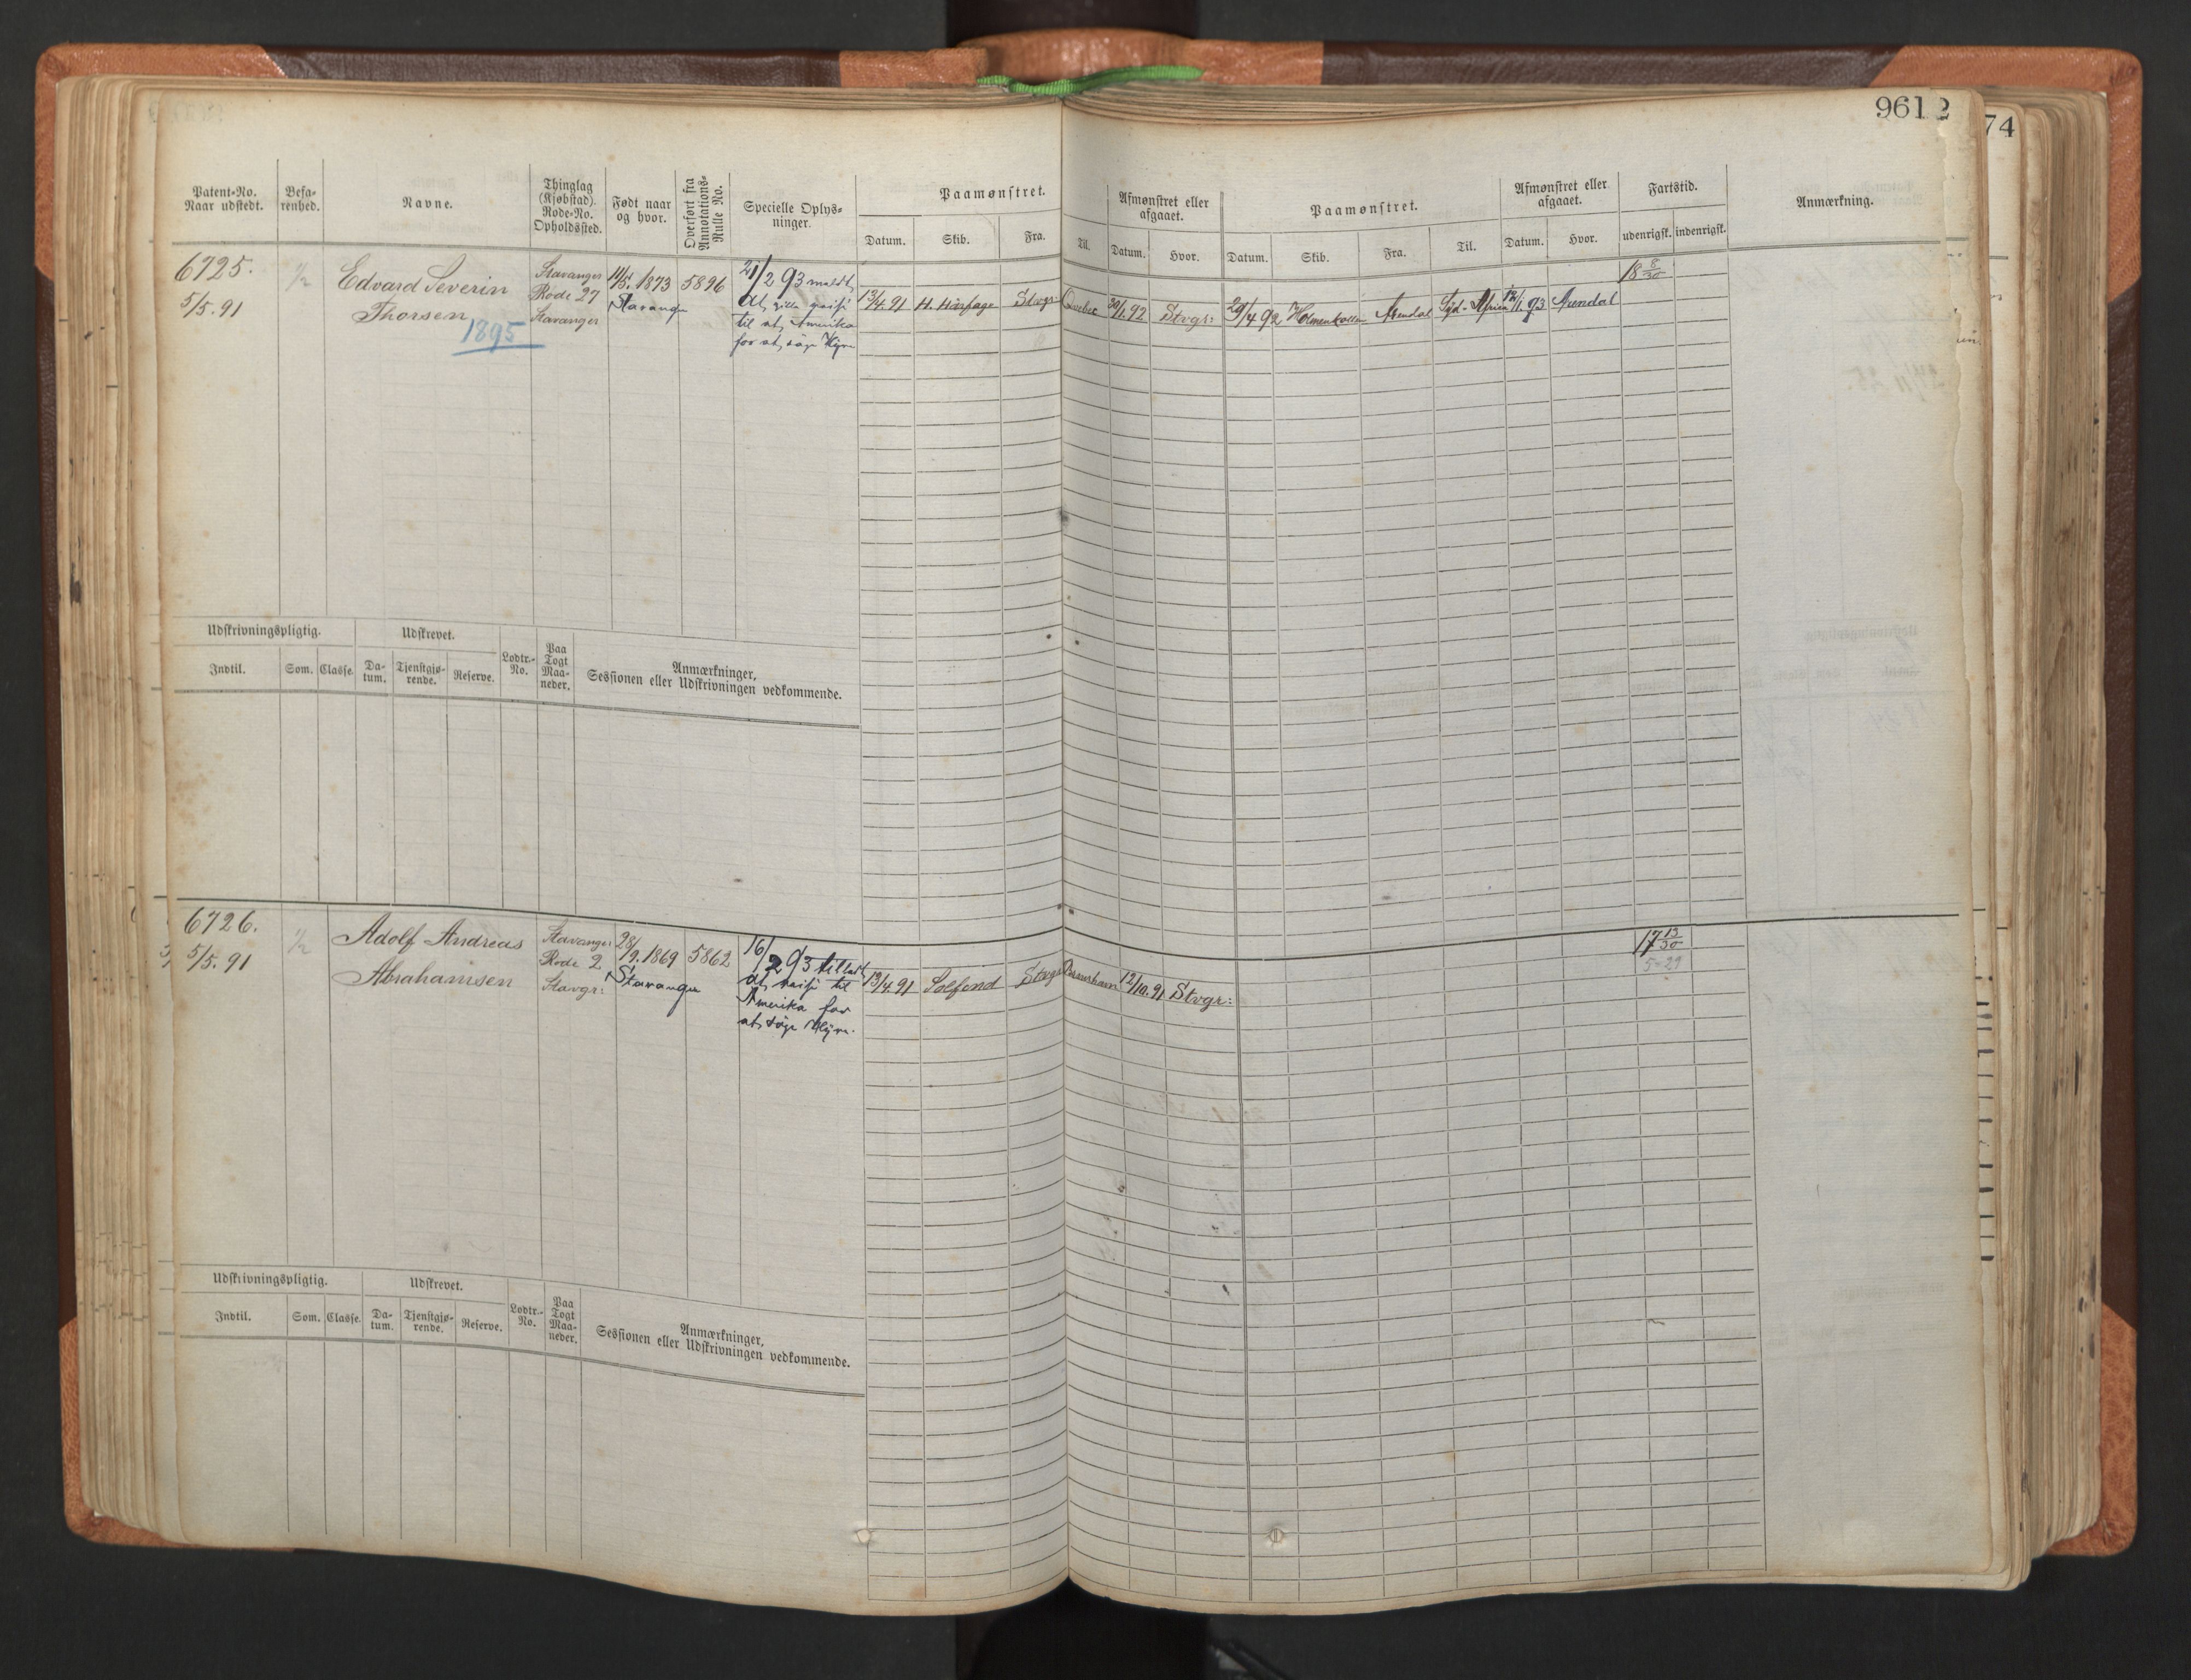 9612
74
Patent-No.
Naar udstedt.
Befa-
renhed.
Navne.
Thinglag
(Kjøbstad).
Rode-No.
Opholdssted.
Født naar
og hvor.
Overført fra
Annotations-
Rulle No.
Specielle Oplys-
ninger.
Paamønstret.
Datum.
Skib.
Fra.
Til.
Afmønstret eller
afgaaet.
Datum.
Hvor.
Paamønstret.
Datum.
Skib.
Fra.
Til.
Afmønstret eller
afgaaet.
Datum.
Hvor.
Fartstid.
udenrigsk.
indenrigsk.
Anmærkning.
6725.
5/5.91
1/2
Edvard Severin
Thorsen
1895
Stavanger
Rode 27
Stavanger
11/5.1873
Stavanger
5896
21/2 93 meldt,
at, ville reise
til at, Amerika
for at, søge Hyre
13/4.91
H. Hårfage
Stvgr:
Quebec
30/1.92
Stvgr:
29/4 92
Holmenkollen
Arendal
Syd-Afrika
12/1.93
Arendal
18 8/30
Udskrivningspligtig.
Indtil.
Som.
Classe.
Udskrevet.
Da-
tum.
Tjenstgjø-
rende.
Reserve.
Lodtr.-
No.
Paa
Togt
Maa-
neder.
Anmærkninger,
Sessionen eller Udskrivningen vedkommende.
6726.
5/5.91
1/2
Adolf Andreas
Abrahamsen
Stavanger
Rode 2
Stavgr:
28/9.1869
Stavanger
5862
16/2 93 tilladt,
at, reise til
Amerika for
at, søge Hyre.
13/4.91
Solfond
Stvgr
12/10.91
Stvgr:
17 13/30
5-29
Udskrivningspligtig.
Indtil.
Som.
Classe.
Udskrevet.
Da-
tum.
Tjenstgjø-
rende.
Reserve.
Lodtr.-
No.
Paa
Togt
Maa-
neder.
Anmærkninger,
Sessionen eller Udskrivningen vedkommende.